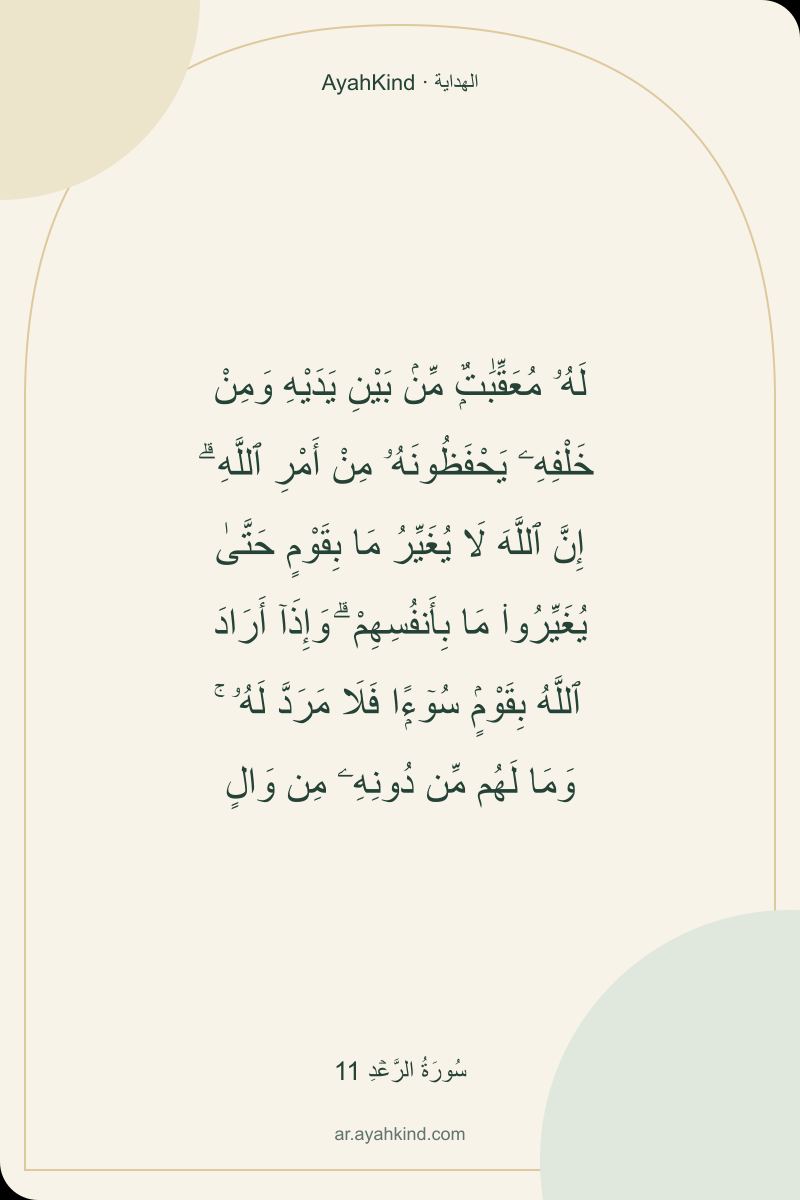 AyahKind · الهداية
لَهُۥ مُعَقِّبَٰتٌۭ مِّنۢ بَيْنِ يَدَيْهِ وَمِنْ
خَلْفِهِۦ يَحْفَظُونَهُۥ مِنْ أَمْرِ ٱللَّهِ ۗ
إِنَّ ٱللَّهَ لَا يُغَيِّرُ مَا بِقَوْمٍ حَتَّىٰ
يُغَيِّرُوا۟ مَا بِأَنفُسِهِمْ ۗ وَإِذَآ أَرَادَ
ٱللَّهُ بِقَوْمٍۢ سُوٓءًۭا فَلَا مَرَدَّ لَهُۥ ۚ
وَمَا لَهُم مِّن دُونِهِۦ مِن وَالٍ
سُورَةُ الرَّعۡدِ 11
ar.ayahkind.com